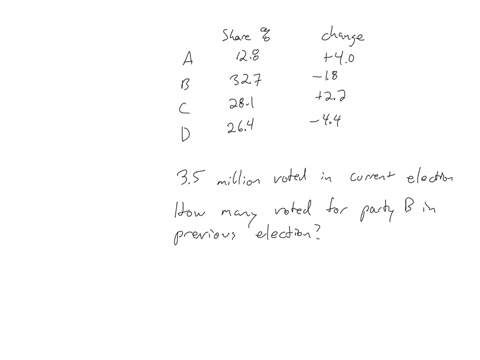 Share % change
A 12.8 +4.0
B 32.7 -1.8
C 28.1 +2.2
D 26.4 -4.4
3.5 million voted in current election
How many voted for party B in
previous election?